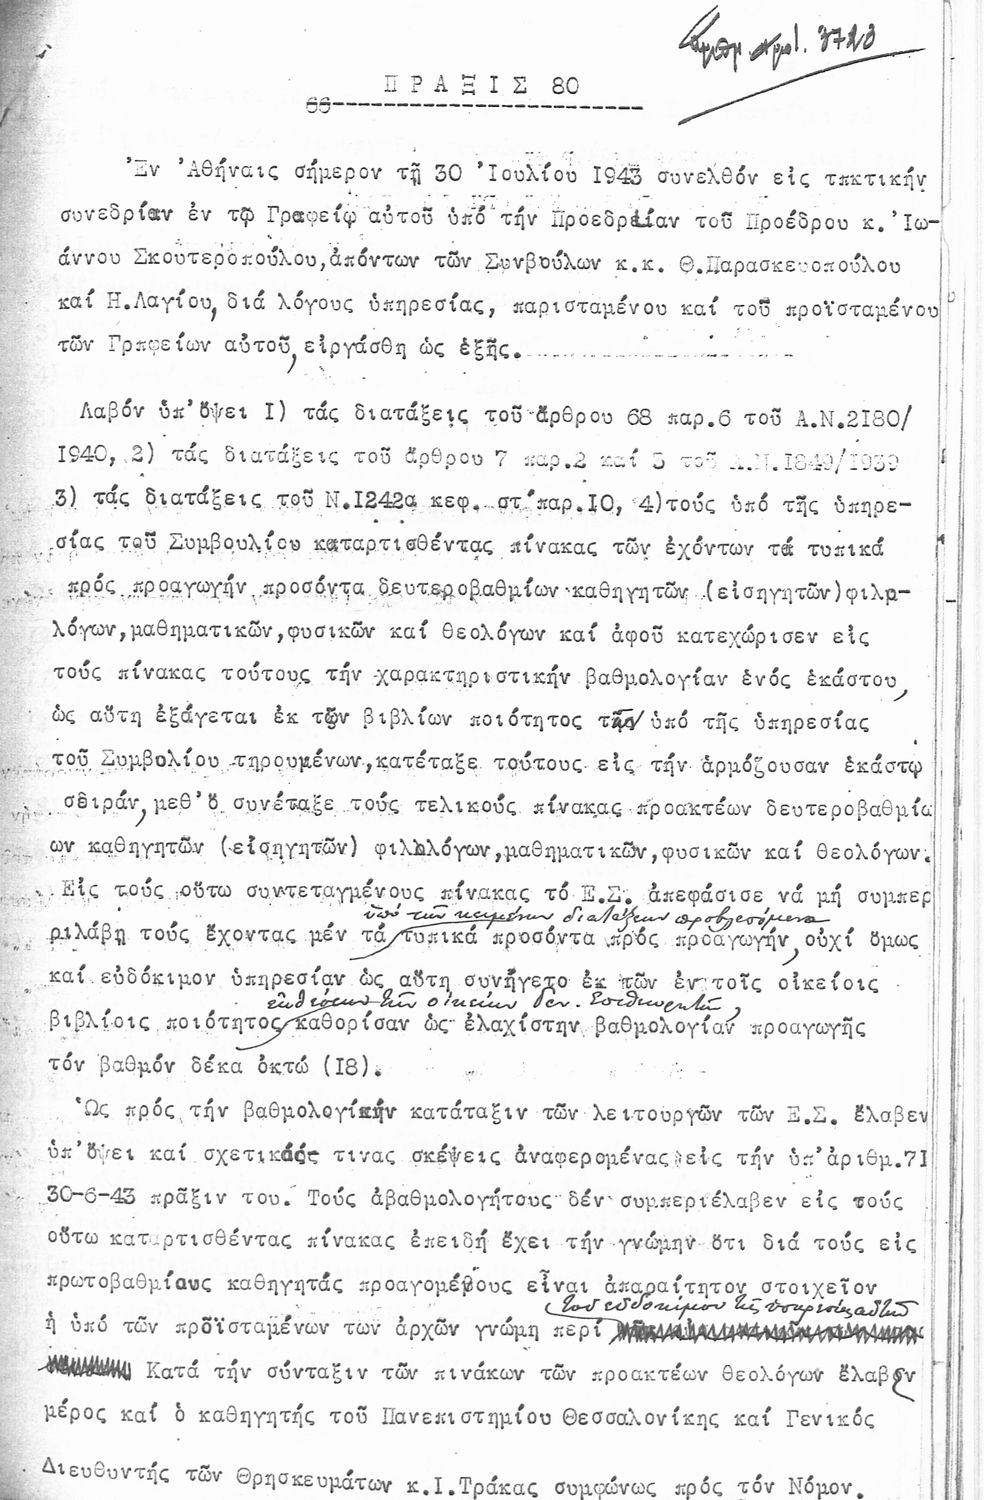 Ἀριθμ. πρωτ. 3723
ΠΡΑΞΙΣ 80
Ἐν Ἀθήναις σήμερον τῇ 30 Ἰουλίου 1943 συνελθόν εἰς τακτικήν
συνεδρίαν ἐν τῷ Γραφείῳ αὐτοῦ ὑπό τήν Προεδρείαν τοῦ Προέδρου κ. Ἰω-
άννου Σκουτεροπούλου, ἀπόντων τῶν Συνβούλων κ.κ. Θ.Παρασκευοπούλου
καί Η.Λαγίου, διά λόγους ὑπηρεσίας, παρισταμένου καί τοῦ προϊσταμένου
τῶν Γραφείων αὐτοῦ, εἰργάσθη ὡς ἑξῆς.
Λαβόν ὑπ' ὄψει I) τάς διατάξεις τοῦ ἄρθρου 68 παρ.6 τοῦ Α.Ν.2I80/
I940, 2) τάς διατάξεις τοῦ ἄρθρου 7 παρ.2 καί 3 τοῦ Α.Ν.I849/I939
3) τάς διατάξεις τοῦ Ν.I242α κεφ. στ' παρ.IO, 4)τούς ὑπό τῆς ὑπηρε-
σίας τοῦ Συμβουλίου καταρτισθέντας πίνακας τῶν ἐχόντων τά τυπικά
πρός προαγωγήν προσόντα δευτεροβαθμίων καθηγητῶν (εἰσηγητῶν)φιλο-
λόγων,μαθηματικῶν,φυσικῶν καί θεολόγων καί ἀφοῦ κατεχώρισεν εἰς
τούς πίνακας τούτους τήν χαρακτηριστικήν βαθμολογίαν ἑνός ἑκάστου,
ὡς αὕτη ἐξάγεται ἐκ τῶν βιβλίων ποιότητος τῆς ὑπό τῆς ὑπηρεσίας
τοῦ Συμβολίου τηρουμένων,κατέταξε τούτους εἰς τήν ἁρμόζουσαν ἑκάστῳ
σειράν, μεθ' ὅ συνέταξε τούς τελικούς πίνακας προακτέων δευτεροβαθμία
ων καθηγητῶν (εἰσηγητῶν) φιλολόγων,μαθηματικῶν,φυσικῶν καί θεολόγων.
Εἰς τούς οὕτω συντεταγμένους πίνακας τό Ε.Σ. ἀπεφάσισε νά μή συμπερ
ὑπό τῶν κειμένων διατάξεων προβλεπόμενα
ριλάβῃ τούς ἔχοντας μέν τά τυπικά προσόντα πρός προαγωγήν, οὐχί ὅμως
καί εὐδόκιμον ὑπηρεσίαν ὡς αὕτη συνήγετο ἐκ τῶν ἐν τοῖς οἰκείοις
ἐκθέσεων τῶν οἰκείων Γεν. Ἐπιθεωρητῶν,
βιβλίοις ποιότητος καθορίσαν ὡς ἐλαχίστην βαθμολογίαν προαγωγῆς
τόν βαθμόν δέκα ὀκτώ (I8).
Ὡς πρός τήν βαθμολογικήν κατάταξιν τῶν λειτουργῶν τῶν Ε.Σ. ἔλαβεν
ὑπ' ὄψει καί σχετικάς τινας σκέψεις ἀναφερομένας εἰς τήν ὑπ' ἀριθμ.7I
30-6-43 πρᾶξιν του. Τούς ἀβαθμολογήτους δέν συμπεριέλαβεν εἰς τούς
οὕτω καταρτισθέντας πίνακας ἐπειδή ἔχει τήν γνώμην ὅτι διά τούς εἰς
πρωτοβαθμίους καθηγητάς προαγομένους εἶναι ἀπαραίτητον στοιχεῖον
τοῦ εὐδοκίμου τῆς ὑπηρεσίας αὐτῶν
ἡ ὑπό τῶν προϊσταμένων των ἀρχῶν γνώμη περί
Κατά τήν σύνταξιν τῶν πινάκων τῶν προακτέων θεολόγων ἔλαβεν
μέρος καί ὁ καθηγητής τοῦ Πανεπιστημίου Θεσσαλονίκης καί Γενικός
Διευθυντής τῶν Θρησκευμάτων κ.Ι.Τράκας συμφώνως πρός τόν Νόμον.